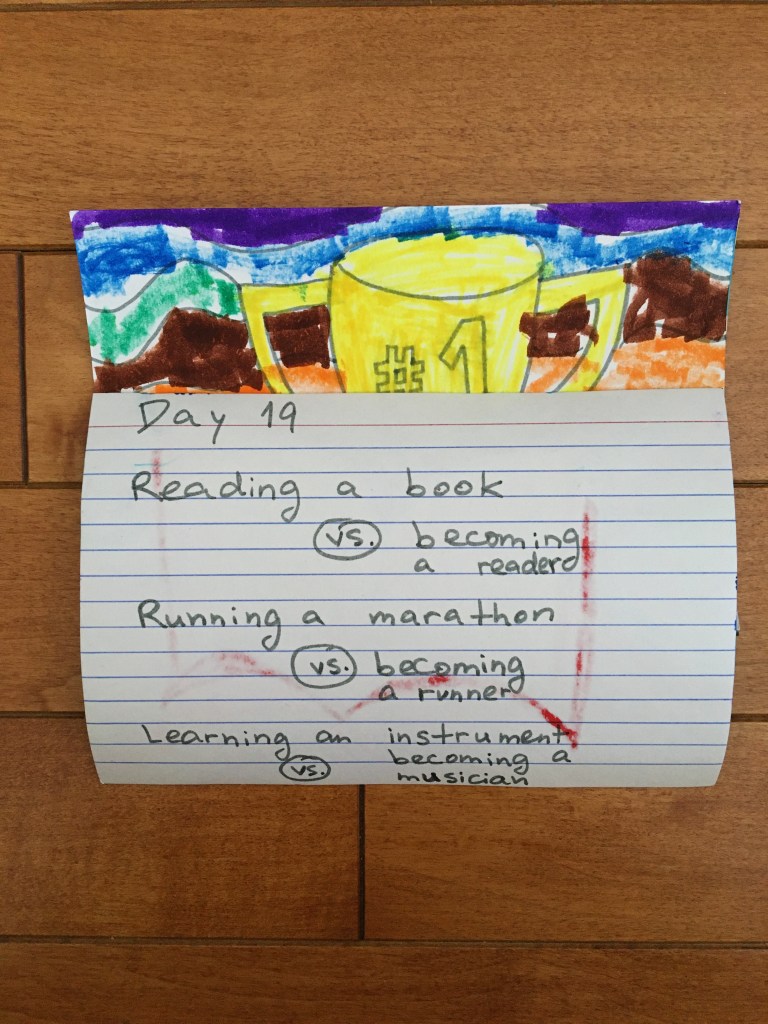 #1
Day 19
Reading a book
vs. becoming
a reader
Running a marathon
vs. becoming
a runner
Learning an instrument
vs. becoming a
musician